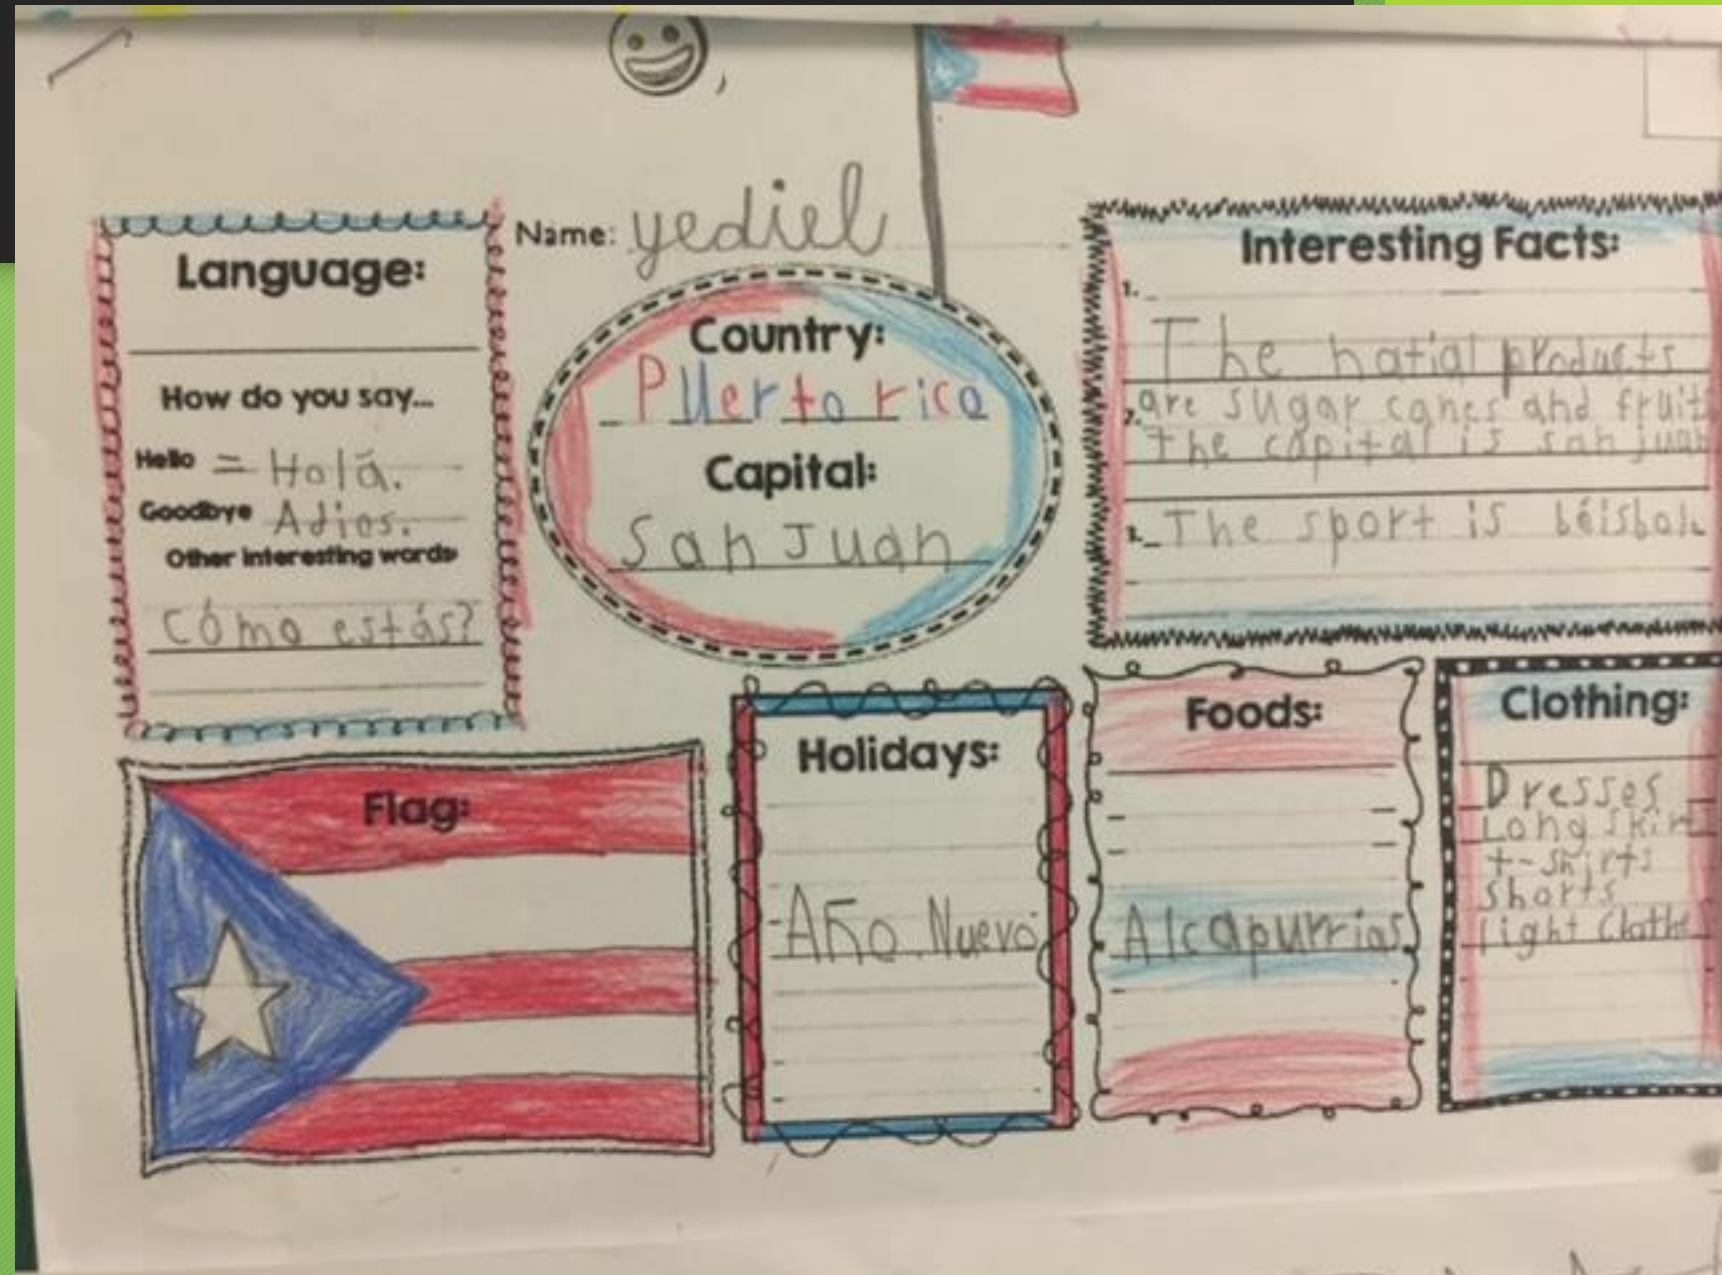 Name: yediel
Language:
How do you say...
Hello = Holá.
Goodbye Adios.
Other interesting words:
Cómo estás?
Country:
Puerto rico
Capital:
San Juan
Interesting Facts:
1.
The natial products
2. are sugar canes and fruit
The capital is san juan
3. The sport is béisbol.
Flag:
Holidays:
Año Nuevo
Foods:
Alcapurrias
Clothing:
Dresses
Long skirt
t-shirts
shorts
light Clothe